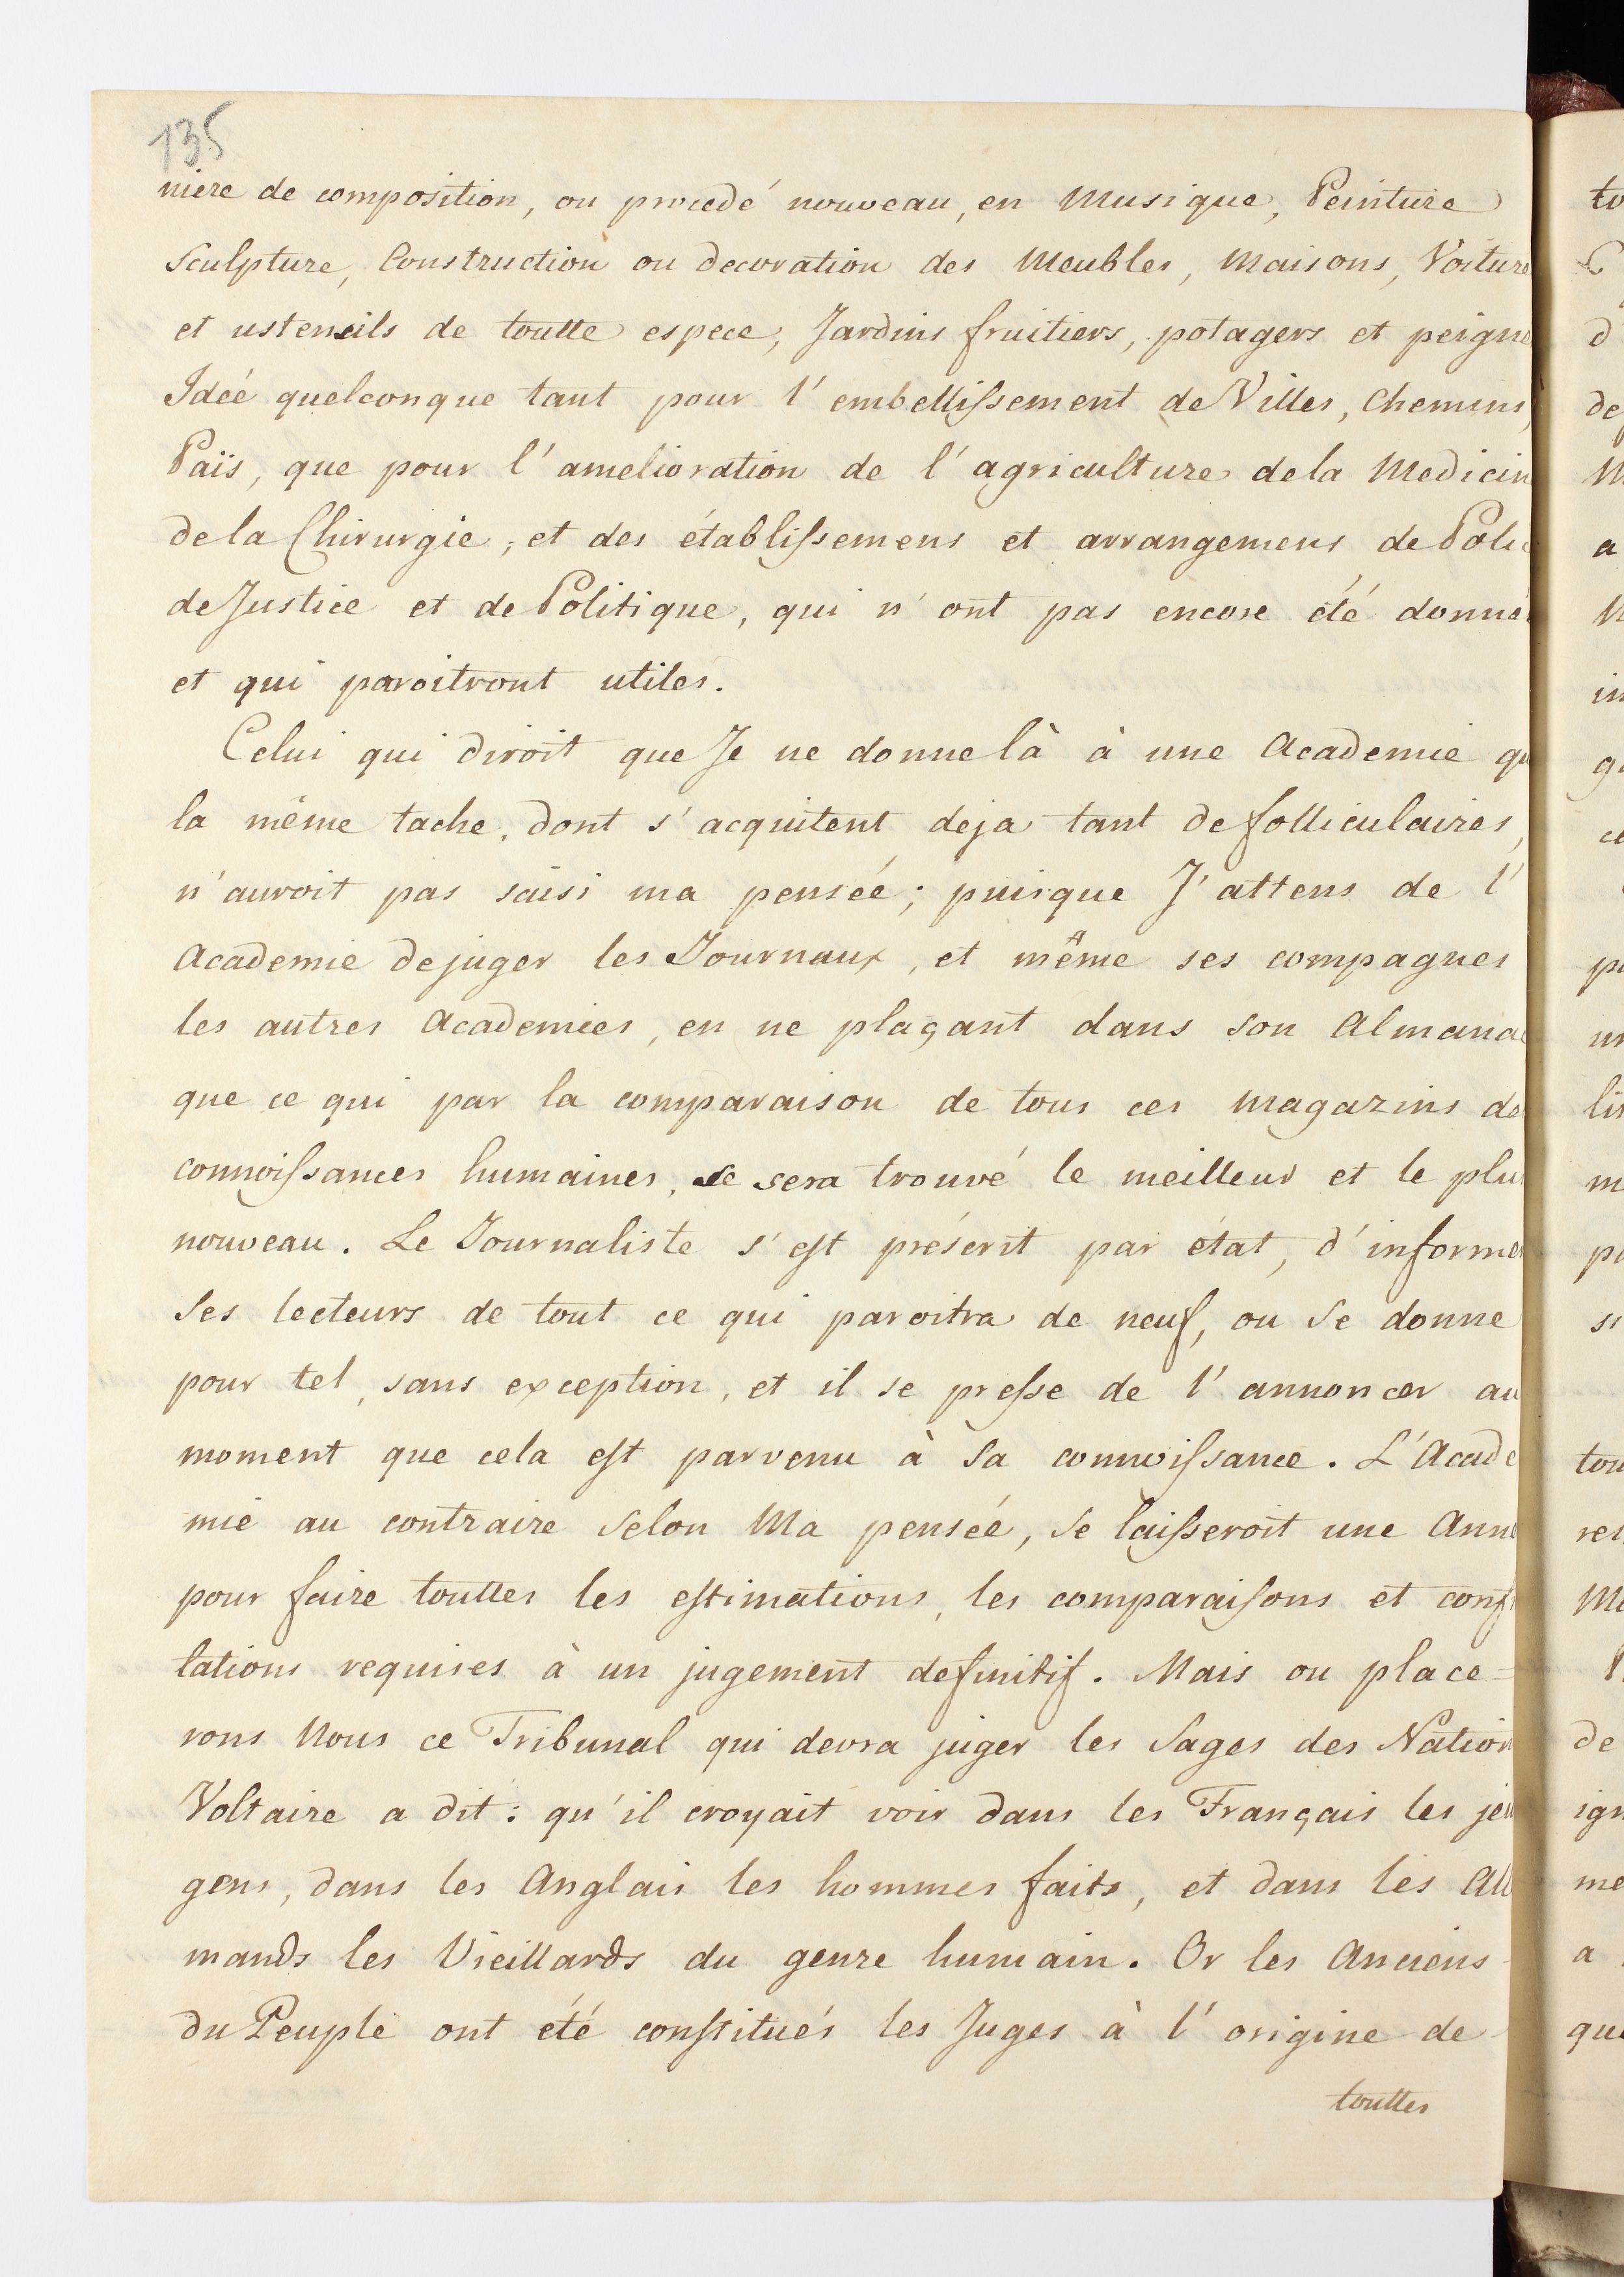 135
niere de composition, ou procedé nouveau, en Musique, Peinture
Sculpture, Construction ou decoration des Meubles, Maisons, Voiture
et ustensils de toutte espece, Jardins fruitiers, potagers et peigne
Ideé quelconque tant pour l'embellissement de Villes, Chemins,
Païs, que pour l'amelioration de l'agriculture de la Medicin
de la Chirurgie, et des établissemens et arrangemens de Polic
de Justice et de Politique, qui n'ont pas encore été donné
et qui paroitront utiles.
Celui qui diroit que Je ne donne là à une Academie qu
la même tache, dont s'acquitent deja tant de folliculaires,
n'auroit pas saisi ma penseé; puisque J'attens de l'
Academie de juger les Journaux, et même ses compagnes
les autres Academies, en ne plaçant dans son Almanac
que ce qui par la comparaison de tous ces magazins de
connoissances humaines, se sera trouvé le meilleur et le plu
nouveau. Le Journaliste s'est préscrit par état, d'informe
Ses lecteurs de tout ce qui paroitra de neuf, ou Se donne
pour tel, sans exception, et il se presse de l'annoncer au
moment que cela est parvenu à Sa connoissance. L'Acade
mie au contraire Selon Ma penseé, Se laisseroit une Anne
pour faire touttes les estimations, les comparaisons et conf
lations requises à un jugement definitif. Mais ou place=
rons Nous ce Tribunal qui devra juger les Sages des Nation
Voltaire a dit: qu'il croyait voir dans les Français les jeu
gens, dans les Anglais les hommes faits, et dans les All
mands les Vieillards du genre humain. Or les Anciens
du Peuple ont été constitués les Juges à l'origine de
touttes